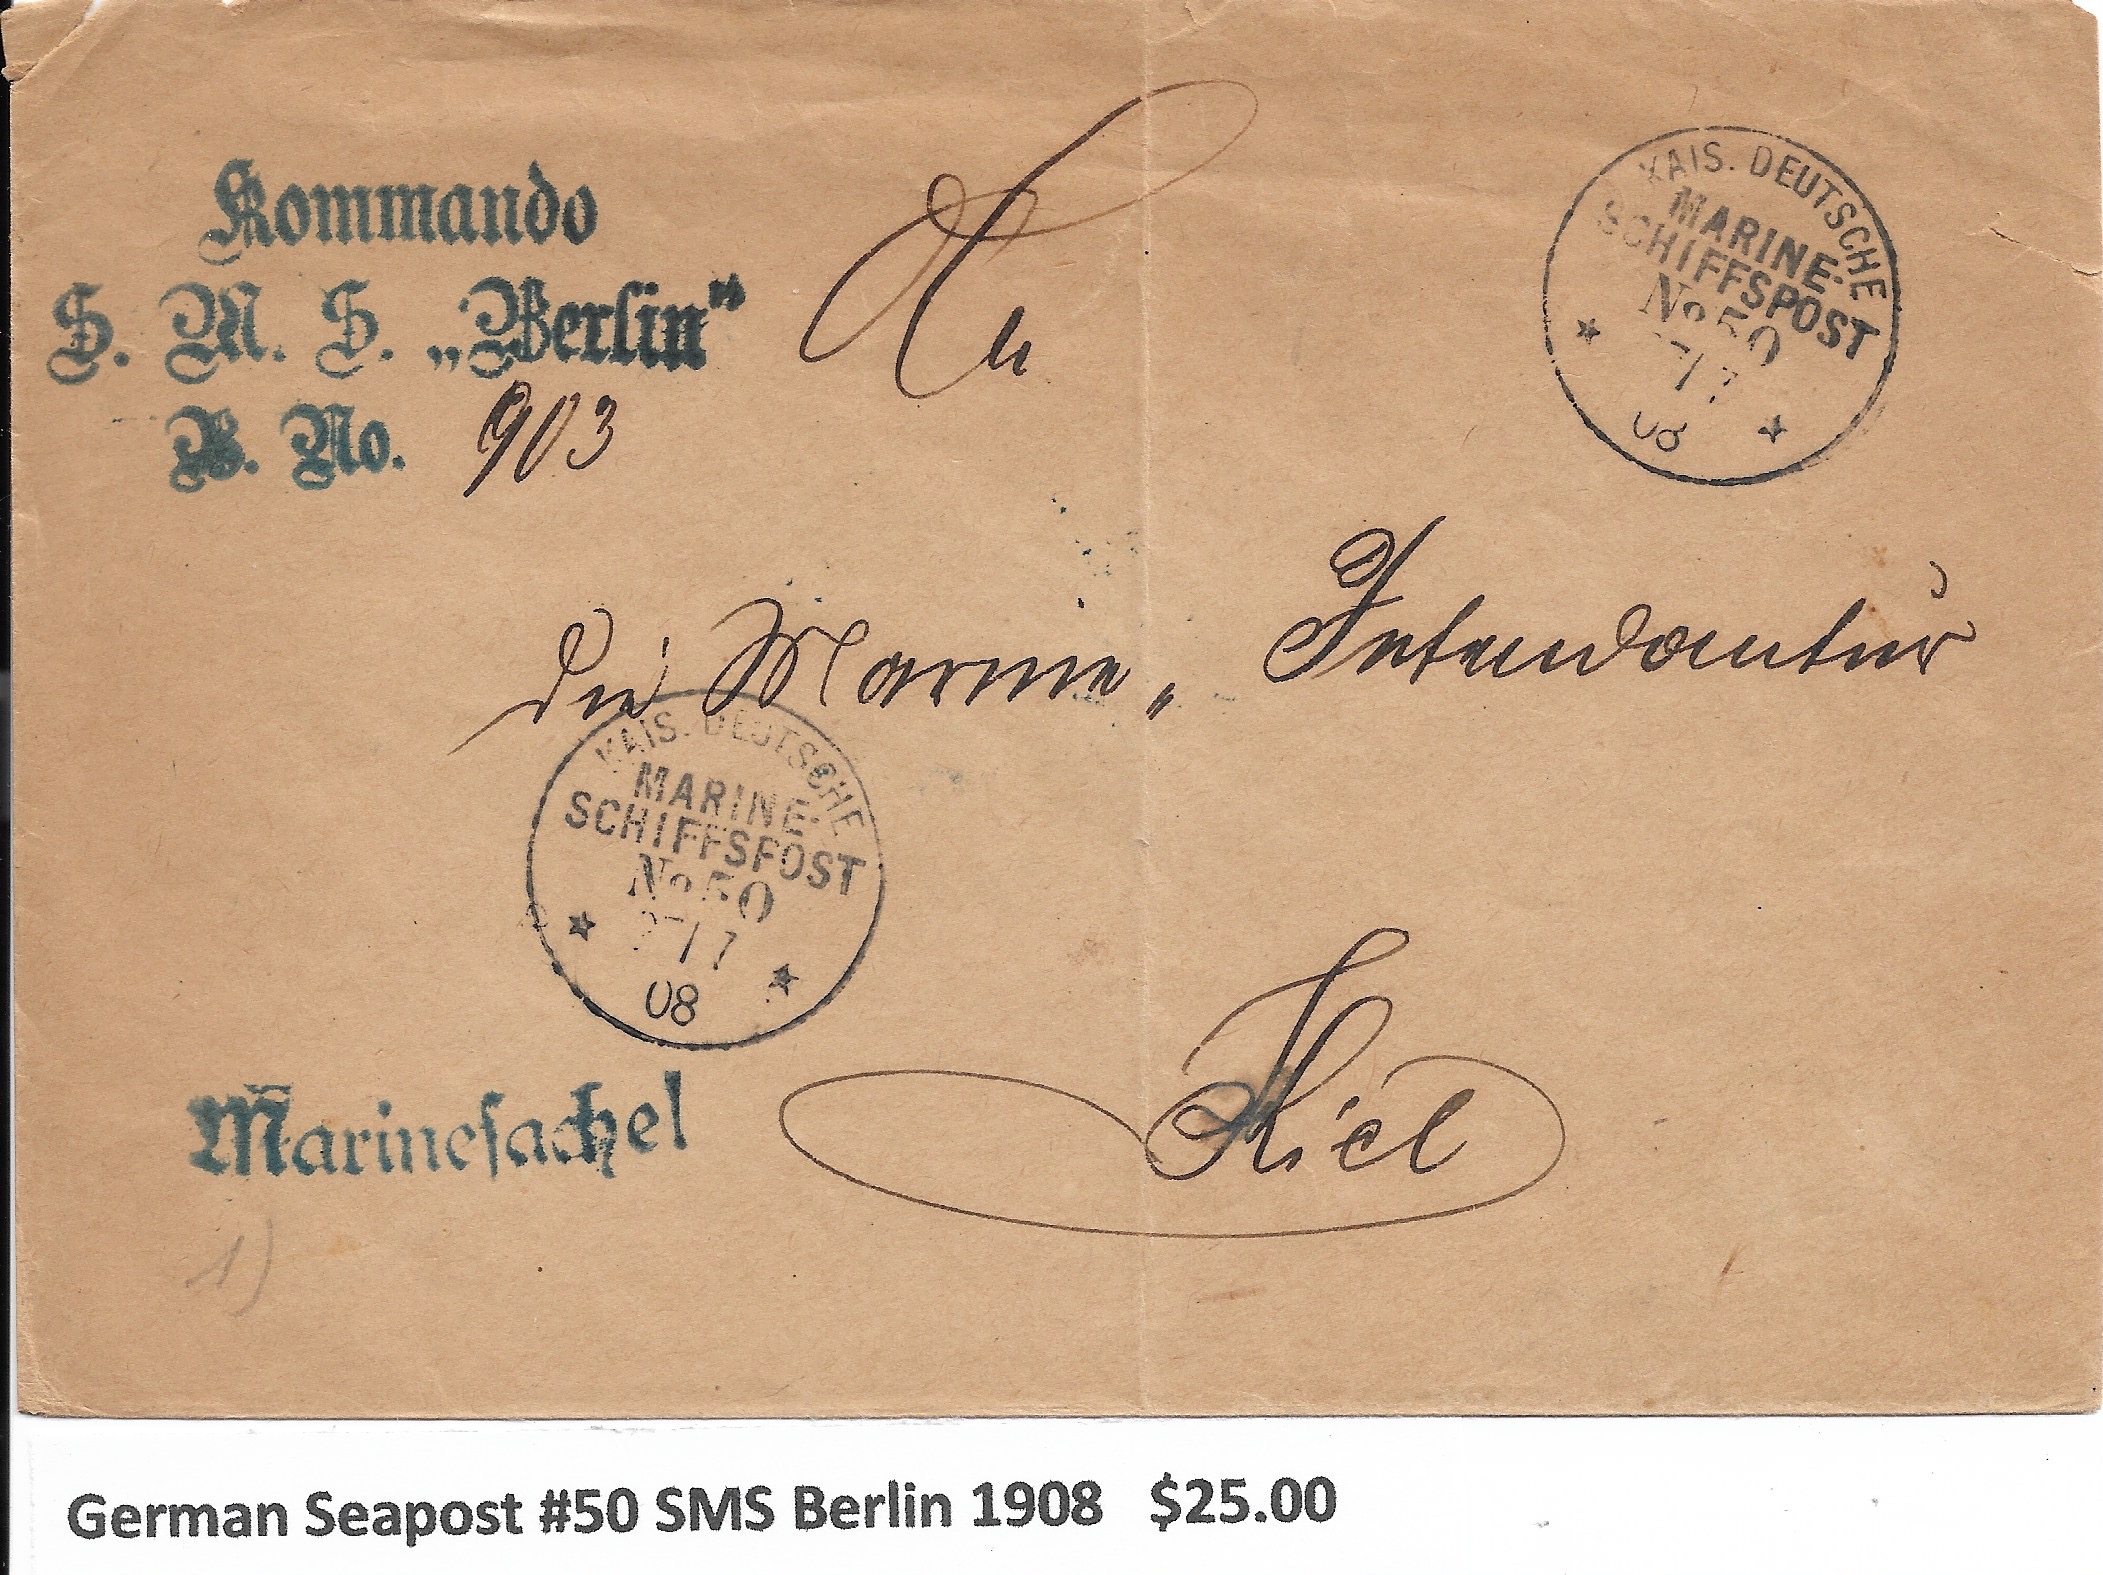 Kommando
S. M. S. „Berlin“
B. No. 903
An
KAIS. DEUTSCHE
MARINE-
SCHIFFSPOST
No 50
/7
08
die Marine-Intendantur
KAIS. DEUTSCHE
MARINE-
SCHIFFSPOST
No 50
27/7
08
Marinesache!
Kiel
1)
German Seapost #50 SMS Berlin 1908 $25.00